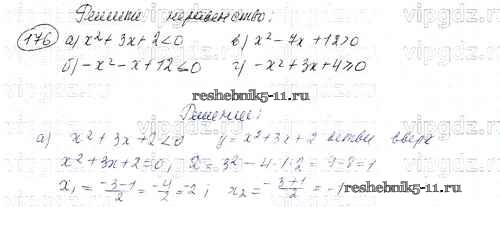 Решите неравенство:
176 а) x² + 3x + 2 < 0 в) x² - 7x + 12 > 0
б) -x² - x + 12 < 0 г) -x² + 3x + 4 ≥ 0
reshebnik5-11.ru
Решение:
а) x² + 3x + 2 < 0 y = x² + 3x + 2 ветви вверх
x² + 3x + 2 = 0, D = 3² - 4·1·2 = 9 - 8 = 1
x₁ = (-3-1)/2 = -4/2 = -2; x₂ = (-3+1)/2 = -1
reshebnik5-11.ru